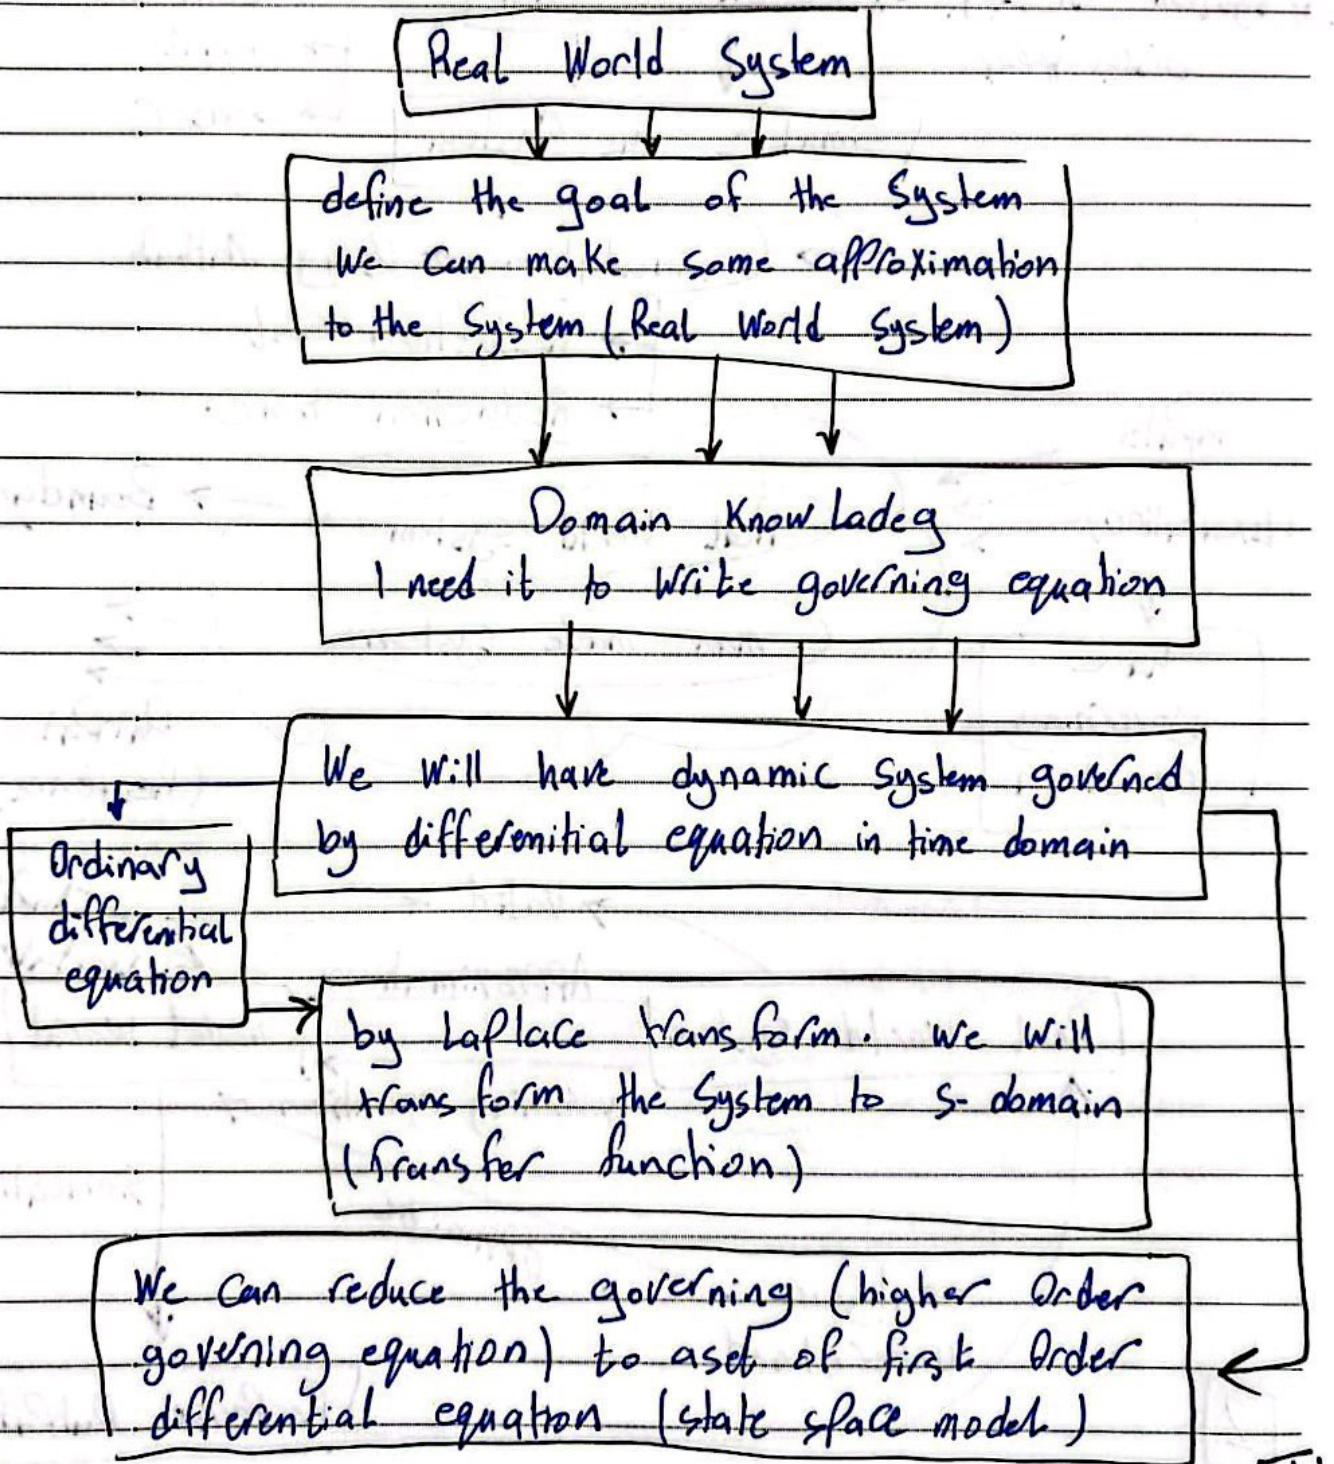 Real World System
define the goal of the System
We Can make some approximation
to the System (Real World System)
Domain KnowLadeg
I need it to Write governing equation
We Will have dynamic System governed
by differenitial equation in time domain
Ordinary
differential
equation
by Laplace transform. We Will
transform the System to S-domain
(Transfer function)
We Can reduce the governing (higher Order
governing equation) to aset of first Order
differential equation (state space model)